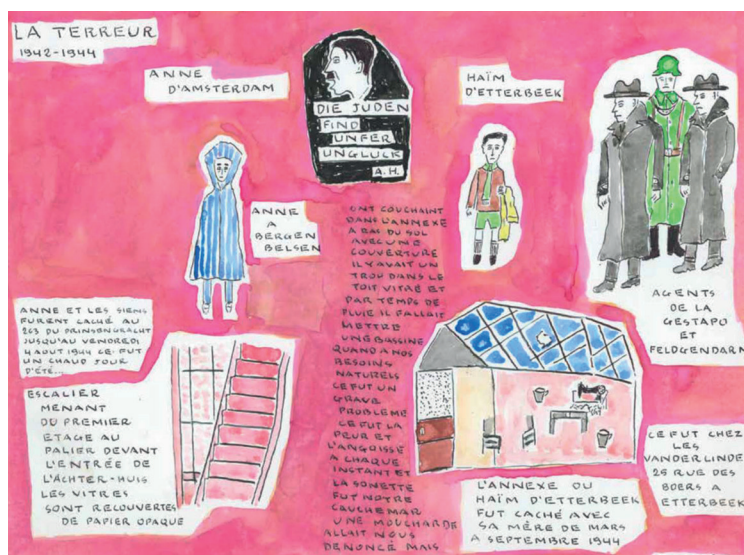 LA TERREUR
1942-1944
ANNE
D'AMSTERDAM
DIE JUDEN
FIND
UNFER
UNGLUCK
A.H.
HAÏM
D'ETTERBEEK
ANNE
A
BERGEN
BELSEN
ONT COUCHAINT
DANS L'ANNEXE
A RAS DU SOL
AVEC UNE
COUVERTURE
IL Y AVAIT UN
TROU DANS LE
TOIT VITRÉ ET
PAR TEMPS DE
PLUIE IL FALLAIT
METTRE
UNE BASSINE
QUAND A NOS
BESOINS
NATURELS
CE FUT UN
GRAVE
PROBLEME
CE FUT LA
PEUR ET
L'ANGOISSE
A CHAQUE
INSTANT ET
LA SONETTE
FUT NOTRE
CAUCHEMAR
UNE MOUCHARDE
ALLAIT NOUS
DENONCÉ MAIS
AGENTS
DE LA
GESTAPO
ET
FELDGENDARM
ANNE ET LES SIENS
FURENT CACHÉ AU
263 DU PRINSENGRACHT
JUSQU'AU VENDREDI
4 AOUT 1944 CE FUT
UN CHAUD JOUR
D'ÉTÉ...
ESCALIER
MENANT
DU PREMIER
ETAGE AU
PALIER DEVANT
L'ENTRÉE DE
L'ACHTER-HUIS
LES VITRES
SONT RECOUVERTES
DE PAPIER OPAQUE
L'ANNEXE OU
HAÏM D'ETTERBEEK
FUT CACHÉ AVEC
SA MÉRE DE MARS
A SEPTEMBRE 1944
CE FUT CHEZ
LES
VANDERLINDE
25 RUE DES
BOERS A
ETTERBEEK